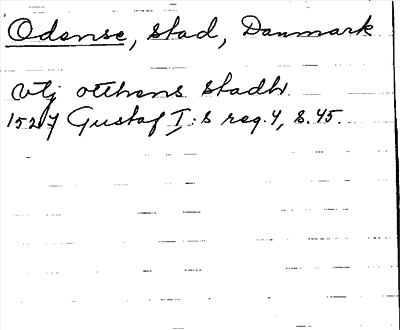 Odense, stad, Danmark
vtj otthens stadh
1527 Gustaf I:s reg. 4, s. 45.